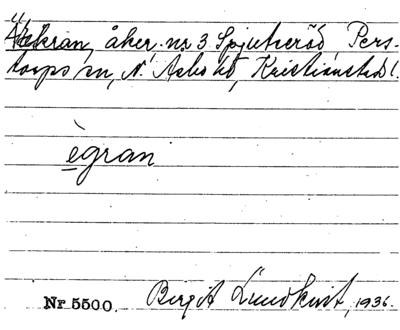 Åekran, åker nr 3 Spjutseröd, Pers-
torps sn, N. Åsbo hd, Kristianstads l.
ègran
Nr 5500. Birgit Lundkvist, 1936.